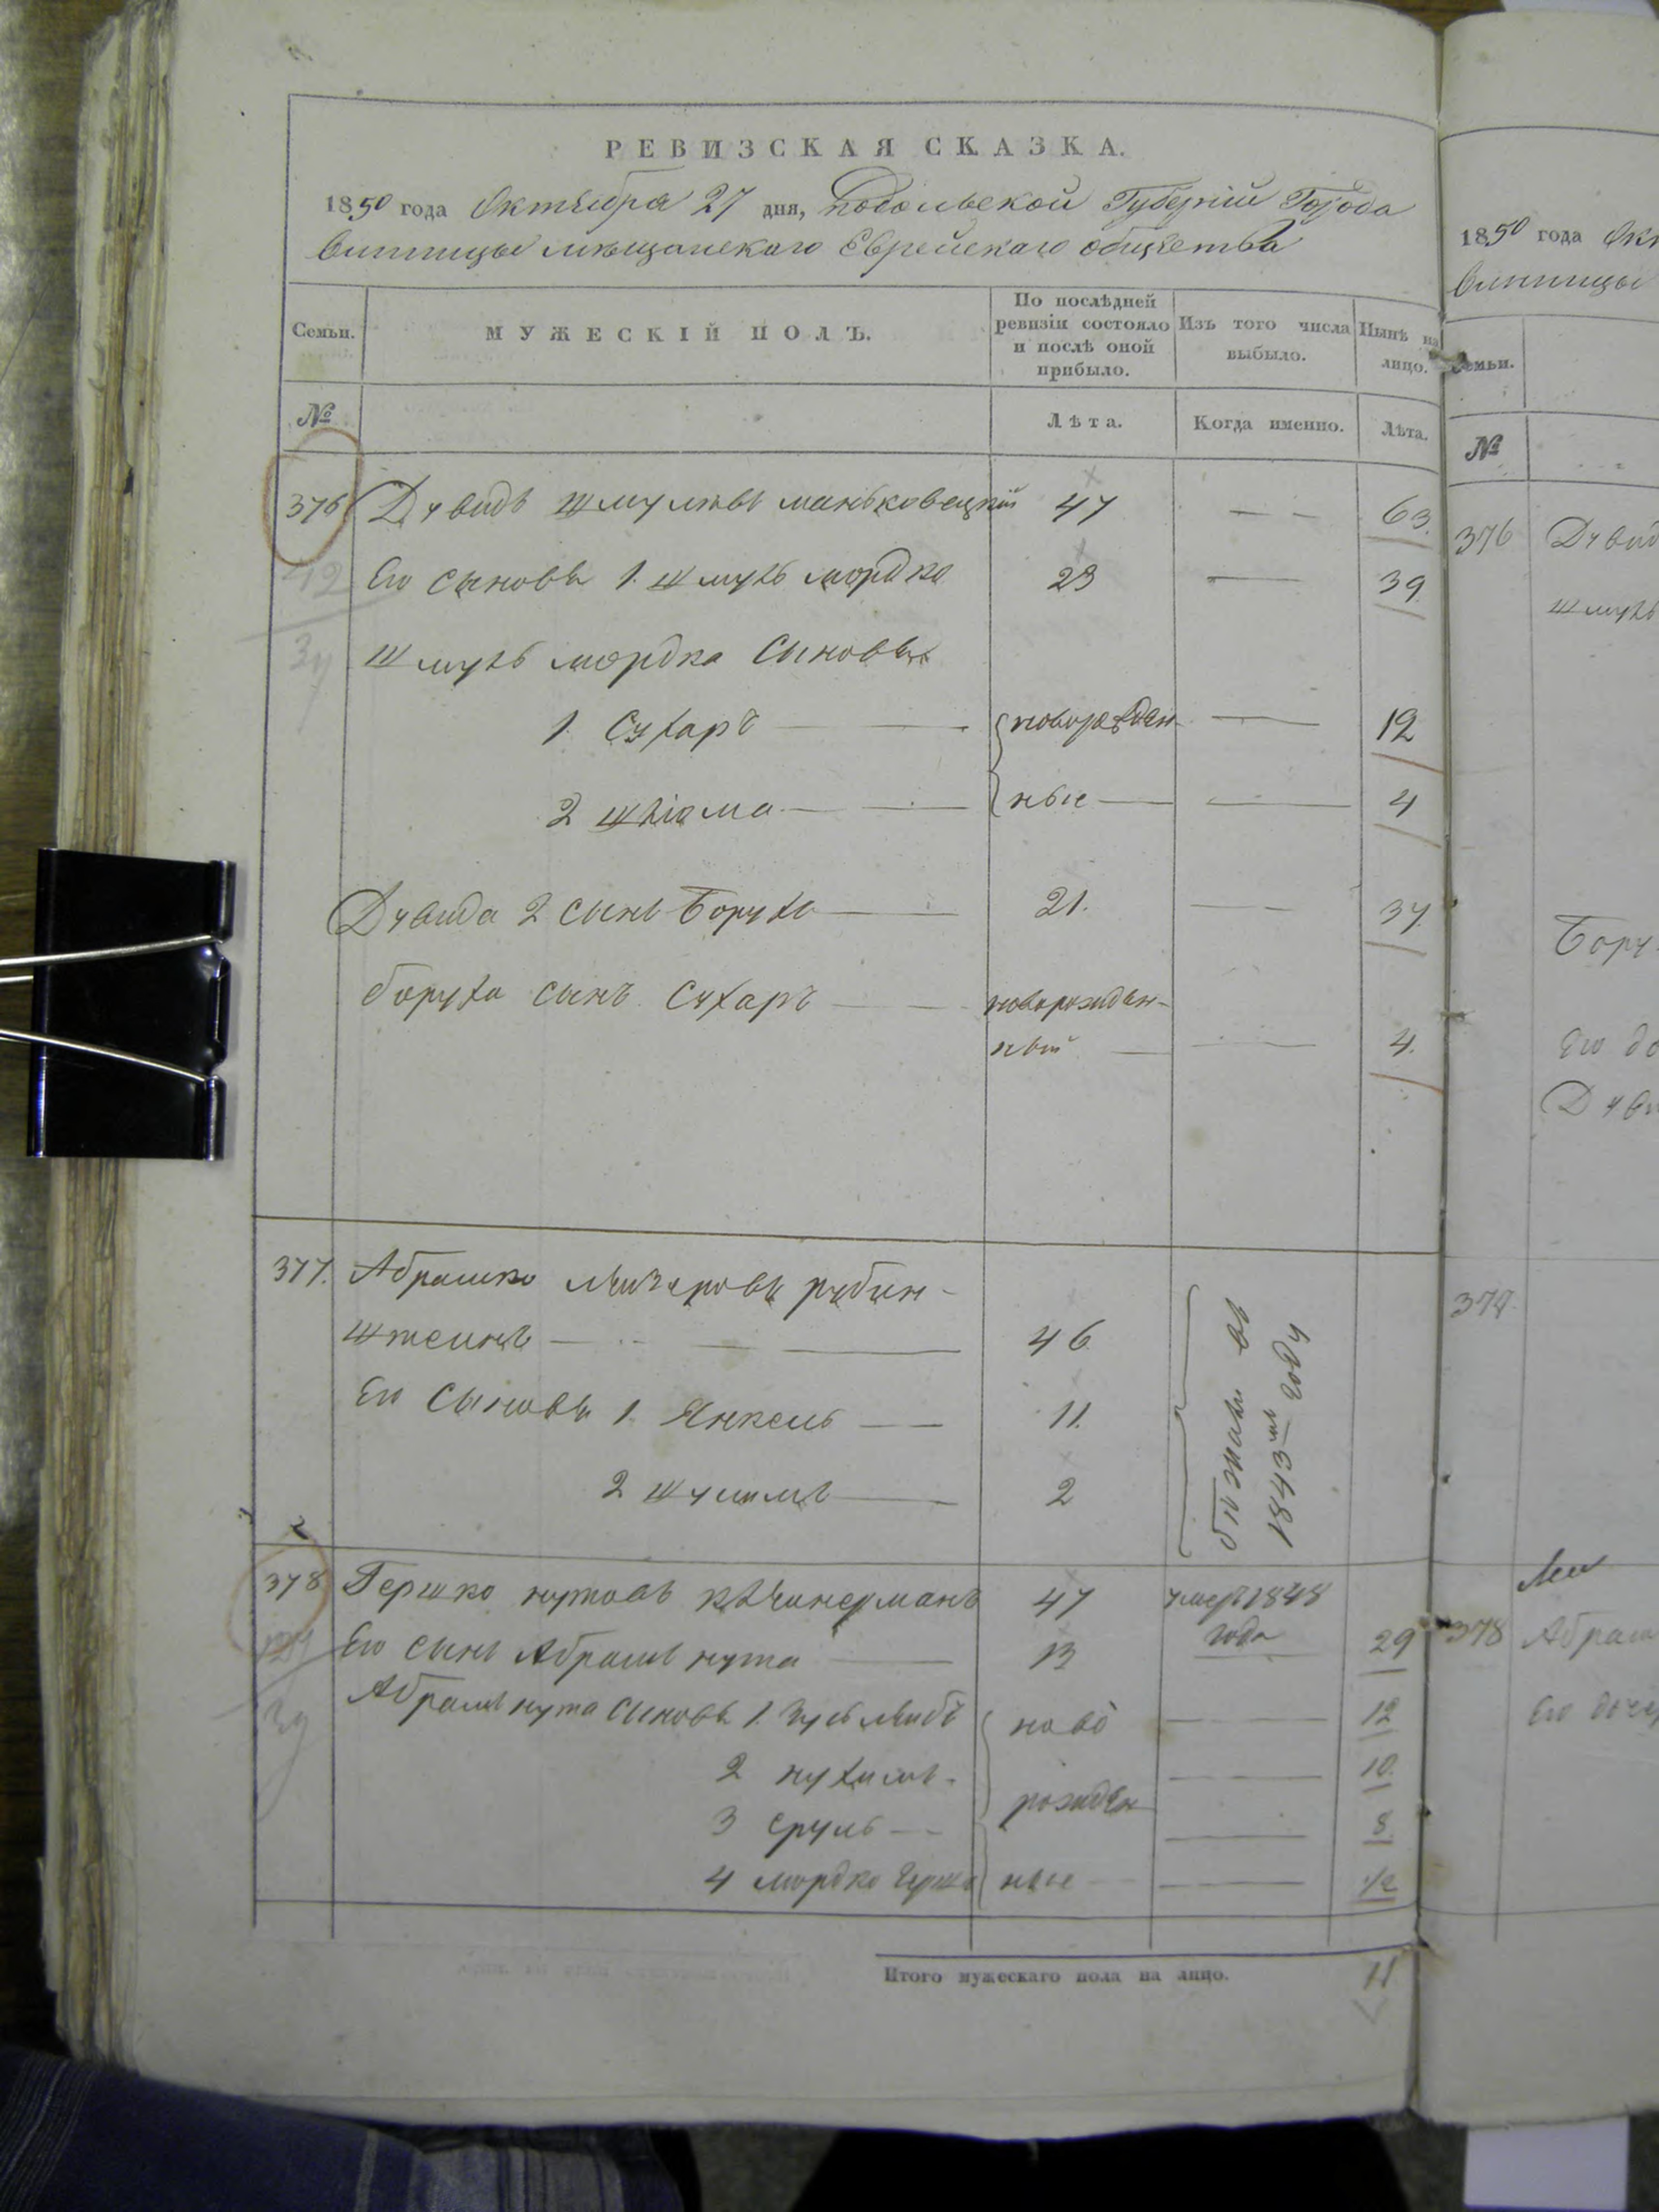 РЕВИЗСКАЯ СКАЗКА.
1850 года Октября 27 дня, Подольской Губерніи Города
Винницы мѣщанскаго Еврейскаго общества
Семьи.
МУЖЕСКІЙ ПОЛЪ.
По послѣдней ревизіи состояло и послѣ оной прибыло.
Изъ того числа выбыло.
Нынѣ на лицо.
№
Лѣта.
Когда именно.
Лѣта.
376 Дувидъ Шмулевъ Маньковецкій 47 — — 63.
Его сыновья 1. Шмуль Мордко 23 — 39.
Шмуль Мордка Сыновья
1. Сухаръ — новорожден- — 12
2 Шліома — ные — 4
Дувида 2 сынъ Борухъ — 21. — 37.
Боруха сынъ Сухаръ — новорожден-
ный — 4.
377. Абрашко Рубин-
штеинъ — 46.
Его Сыновья 1. Янкель — 11.
2 — 2
бѣжали въ
1843мъ году
378 Гершко Нутовъ 47 умеръ 1848
года
Его сынъ Абрамъ Нута — 13 29
Абрамъ Нута Сыновья 1. ново — 12
2 Нухимъ — 10.
рожден
3 Сруль — 8.
4 Мордко Гершко ные — 1/2
Итого мужескаго пола на лицо. 11
1850 года Окт
Винницы
Семьи.
№
376 Дувид
Шмуль
Бору
Его до
Дуви
377.
378 Абрам
Его дочер